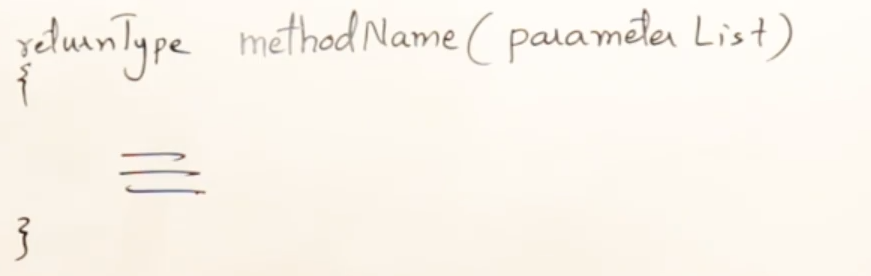 returnType methodName ( parameter List )
{
}